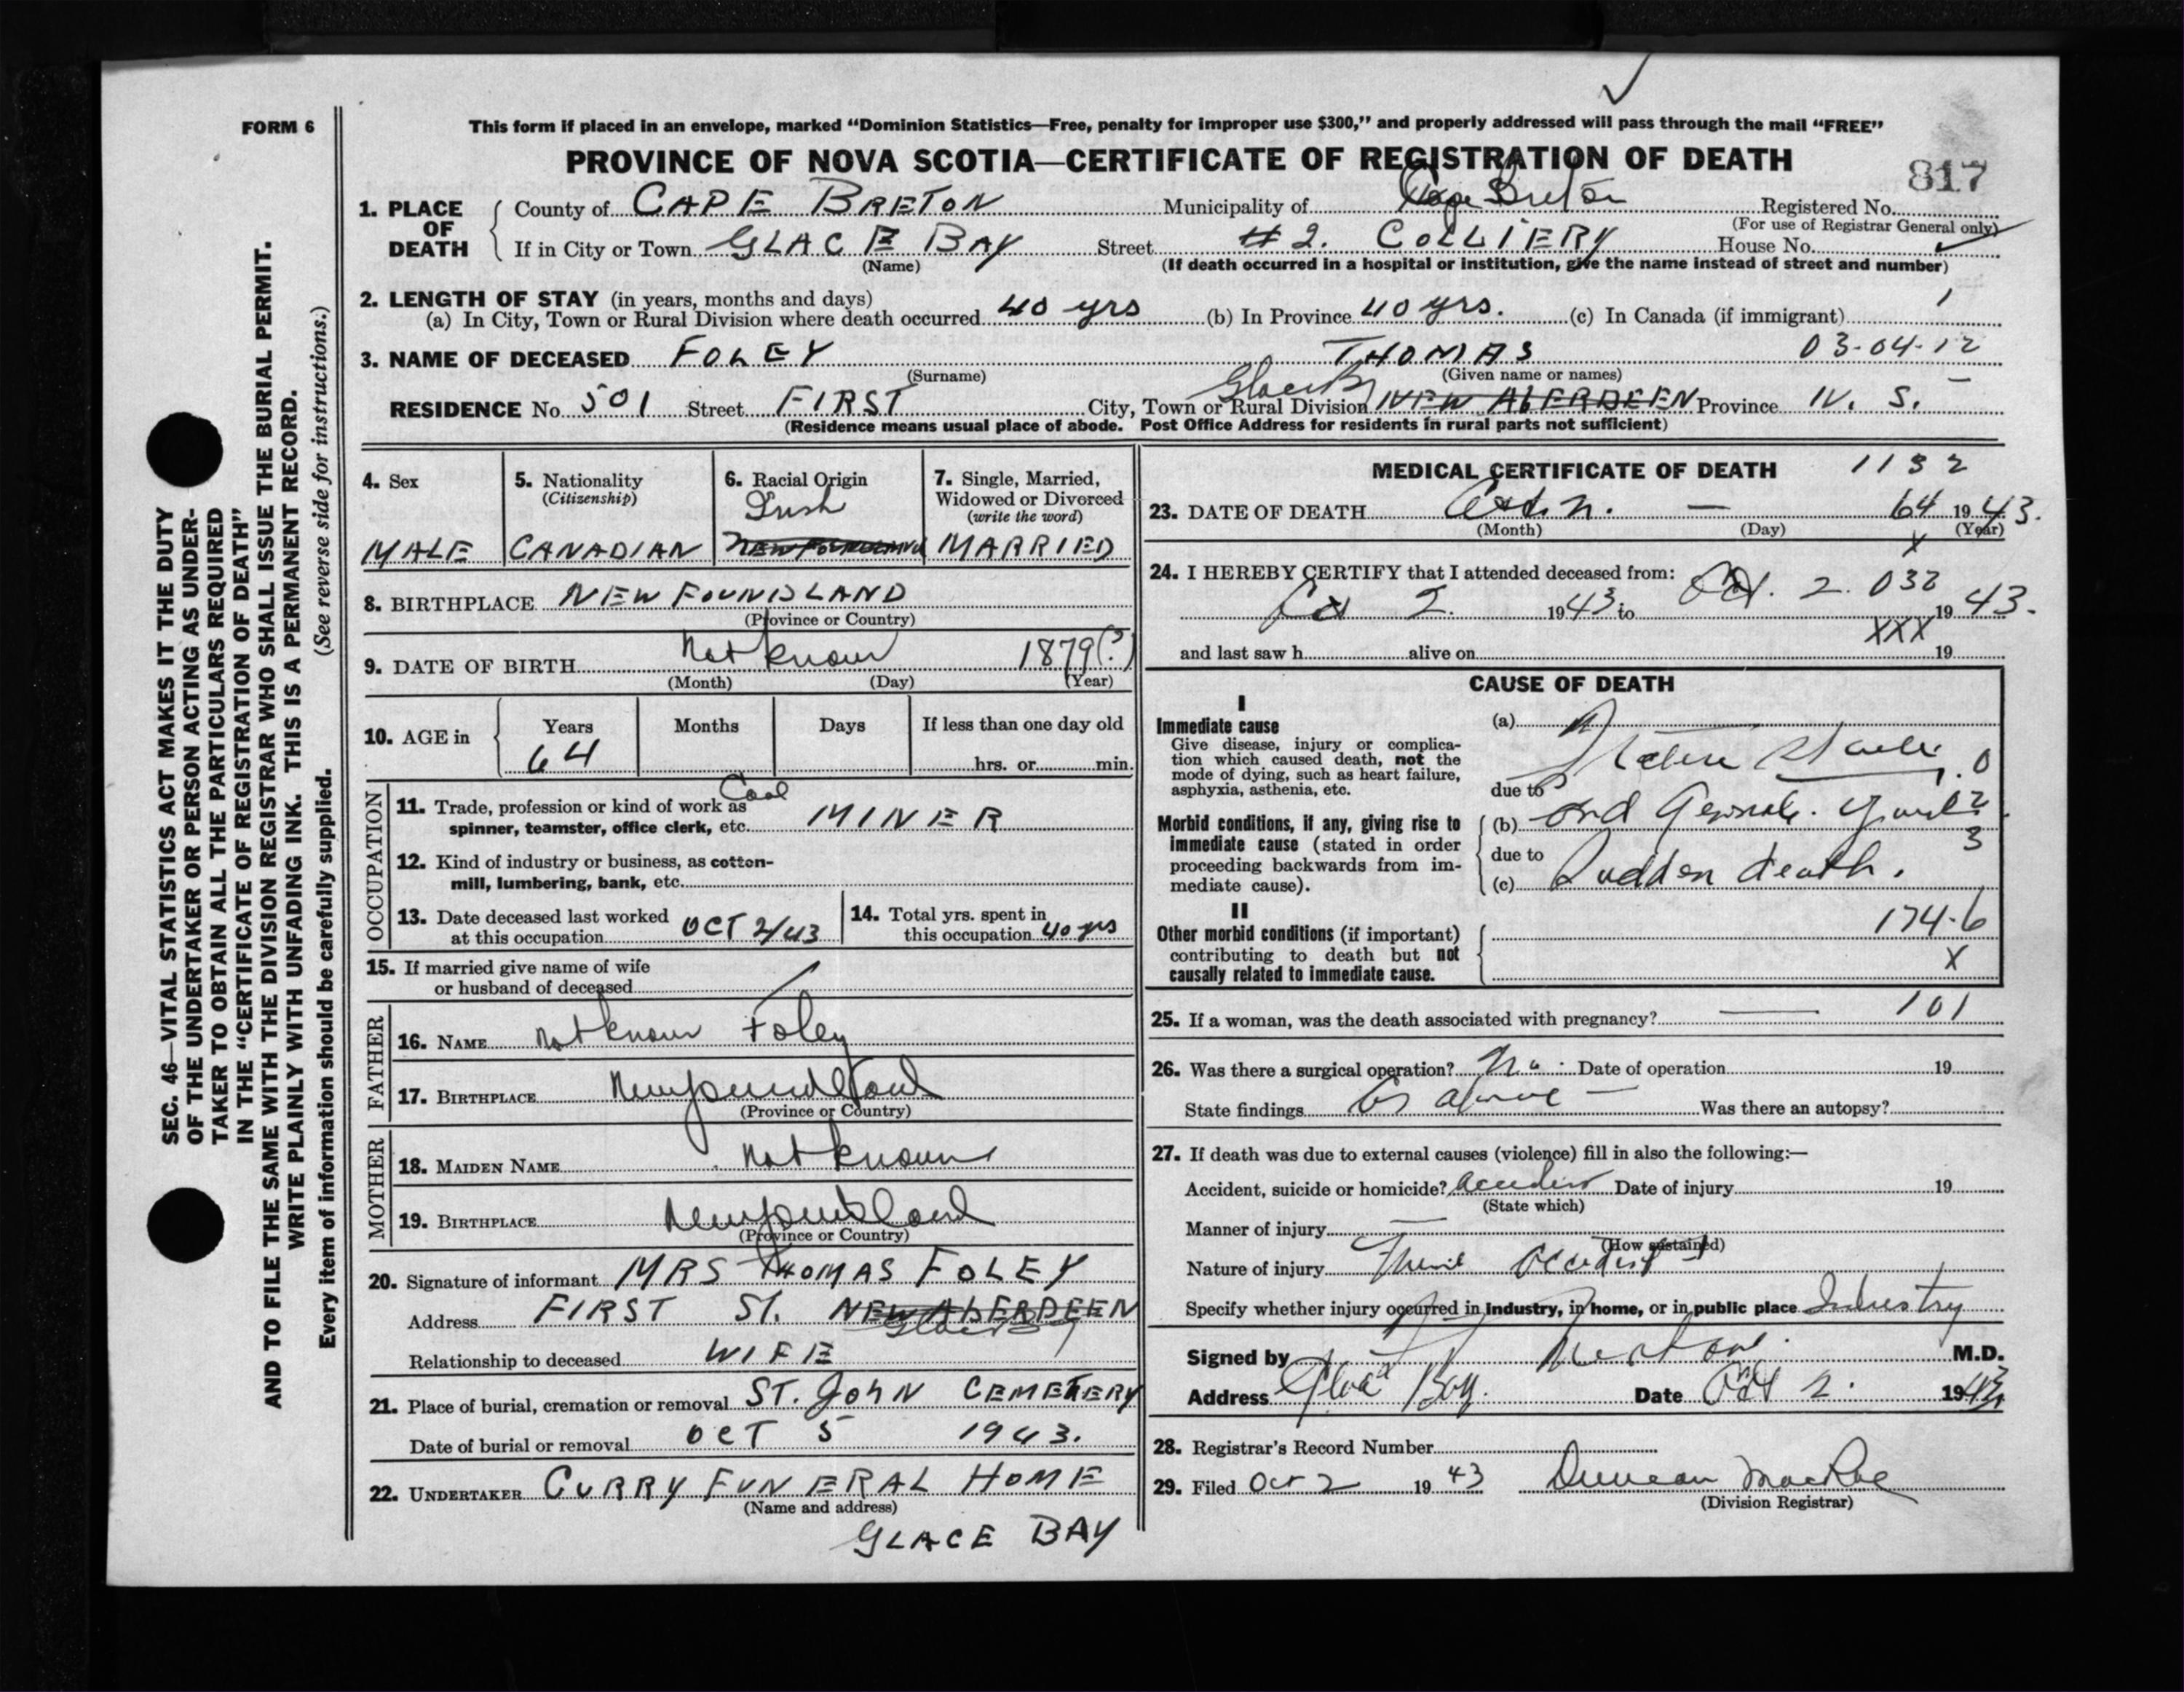 FORM 6
This form if placed in an envelope, marked “Dominion Statistics—Free, penalty for improper use $300,” and properly addressed will pass through the mail “FREE”
PROVINCE OF NOVA SCOTIA—CERTIFICATE OF REGISTRATION OF DEATH
817
1. PLACE OF DEATH
County of CAPE BRETON Municipality of Cape Breton Registered No.
(For use of Registrar General only)
If in City or Town GLACE BAY Street #2. COLLIERY House No.
(Name) (If death occurred in a hospital or institution, give the name instead of street and number)
2. LENGTH OF STAY (in years, months and days)
(a) In City, Town or Rural Division where death occurred 40 yrs (b) In Province 40 yrs. (c) In Canada (if immigrant) 1
3. NAME OF DECEASED FOLEY THOMAS 03-04-12
(Surname) (Given name or names)
Glace B
RESIDENCE No. 501 Street FIRST City, Town or Rural Division NEW ABERDEEN Province N. S.
(Residence means usual place of abode. Post Office Address for residents in rural parts not sufficient)
4. Sex
MALE
5. Nationality
(Citizenship)
CANADIAN
6. Racial Origin
Irish
NEWFOUNDLAND
7. Single, Married,
Widowed or Divorced
(write the word)
MARRIED
8. BIRTHPLACE NEWFOUNDLAND
(Province or Country)
9. DATE OF BIRTH Not known 1879(?)
(Month) (Day) (Year)
10. AGE in
Years Months Days If less than one day old
64 hrs. or min.
OCCUPATION
Coal
11. Trade, profession or kind of work as
spinner, teamster, office clerk, etc. MINER
12. Kind of industry or business, as cotton-
mill, lumbering, bank, etc.
13. Date deceased last worked
at this occupation OCT 2/43
14. Total yrs. spent in
this occupation 40 yrs
15. If married give name of wife
or husband of deceased
FATHER
16. NAME Not known Foley
17. BIRTHPLACE Newfoundland
(Province or Country)
MOTHER
18. MAIDEN NAME Not known
19. BIRTHPLACE Newfoundland
(Province or Country)
20. Signature of informant MRS THOMAS FOLEY
Address FIRST St. NEW ABERDEEN
Glace Bay
Relationship to deceased WIFE
21. Place of burial, cremation or removal ST. JOHN CEMETERY
Date of burial or removal OCT 5 1943.
22. UNDERTAKER CURRY FUNERAL HOME
(Name and address)
GLACE BAY
MEDICAL CERTIFICATE OF DEATH 1132
23. DATE OF DEATH — 64 1943.
(Month) (Day) (Year)
X
24. I HEREBY CERTIFY that I attended deceased from:
Oct 2. 1943 to Oct. 2. 032 1943.
XXX
and last saw h alive on 19
CAUSE OF DEATH
I
Immediate cause
Give disease, injury or complica-
tion which caused death, not the
mode of dying, such as heart failure,
asphyxia, asthenia, etc.
(a)
due to 1.0
Morbid conditions, if any, giving rise to
immediate cause (stated in order
proceeding backwards from im-
mediate cause).
(b) and 2
due to 3
(c) Sudden death.
II
Other morbid conditions (if important)
contributing to death but not
causally related to immediate cause.
174-6
X
25. If a woman, was the death associated with pregnancy? — 101
26. Was there a surgical operation? No. Date of operation 19
State findings As above — Was there an autopsy?
27. If death was due to external causes (violence) fill in also the following:—
Accident, suicide or homicide? Accident Date of injury 19
(State which)
Manner of injury —
(How sustained)
Nature of injury accident
Specify whether injury occurred in industry, in home, or in public place Industry
Signed by M.D.
Address Glace Bay. Date Oct 2. 1943
28. Registrar's Record Number
29. Filed Oct 2 1943 Duncan MacRae
(Division Registrar)
SEC. 46—VITAL STATISTICS ACT MAKES IT THE DUTY
OF THE UNDERTAKER OR PERSON ACTING AS UNDER-
TAKER TO OBTAIN ALL THE PARTICULARS REQUIRED
IN THE “CERTIFICATE OF REGISTRATION OF DEATH”
AND TO FILE THE SAME WITH THE DIVISION REGISTRAR WHO SHALL ISSUE THE BURIAL PERMIT.
WRITE PLAINLY WITH UNFADING INK. THIS IS A PERMANENT RECORD.
Every item of information should be carefully supplied. (See reverse side for instructions.)